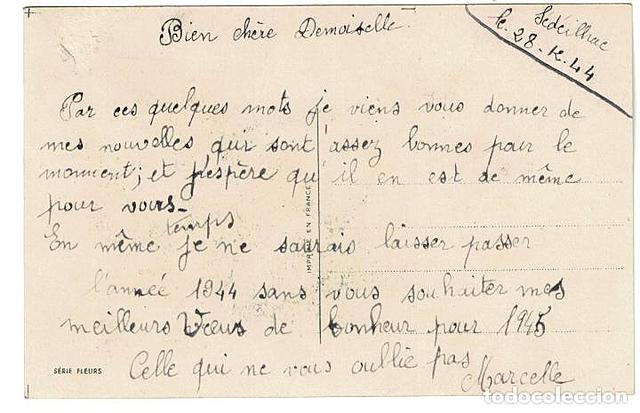 Bien chère Demoiselle.
Sédeilhac
le 28-12-44
Par ces quelques mots je viens vous donner de
mes nouvelles qui sont assez bonnes pour le
moment; et j'espère qu'il en est de même
pour vous-
En même temps je ne saurais laisser passer
l'année 1944 sans vous souhaiter mes
meilleurs Vœux de bonheur pour 1945
Celle qui ne vous oublie pas
Marcelle
IMPRIMÉ EN FRANCE
SÉRIE FLEURS
todocoleccion